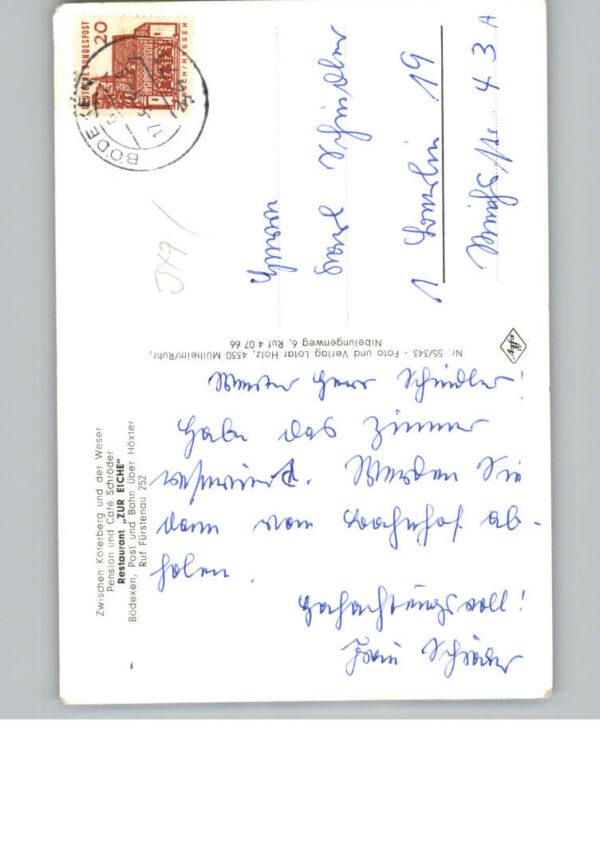 Zwischen Köterberg und der Weser
Pension und Café Schröder
Restaurant „ZUR EICHE"
Bödexen, Post und Bahn über Höxter
Ruf Fürstenau 252
Werter Herr Schindler!
Habe das Zimmer
reserviert. Werden Sie
dann vom Bahnhof ab-
holen.
Hochachtungsvoll!
Frau Schröder
Nr. 55/343 - Foto und Verlag Lotar Holz, 4330 Mülheim/Ruhr,
Nibelungenweg 6, Ruf 4 07 66
DEUTSCHE BUNDESPOST
20
LORSCH/HESSEN
BÖDEXEN
Herrn
Schindler
1 Berlin 19
43 A